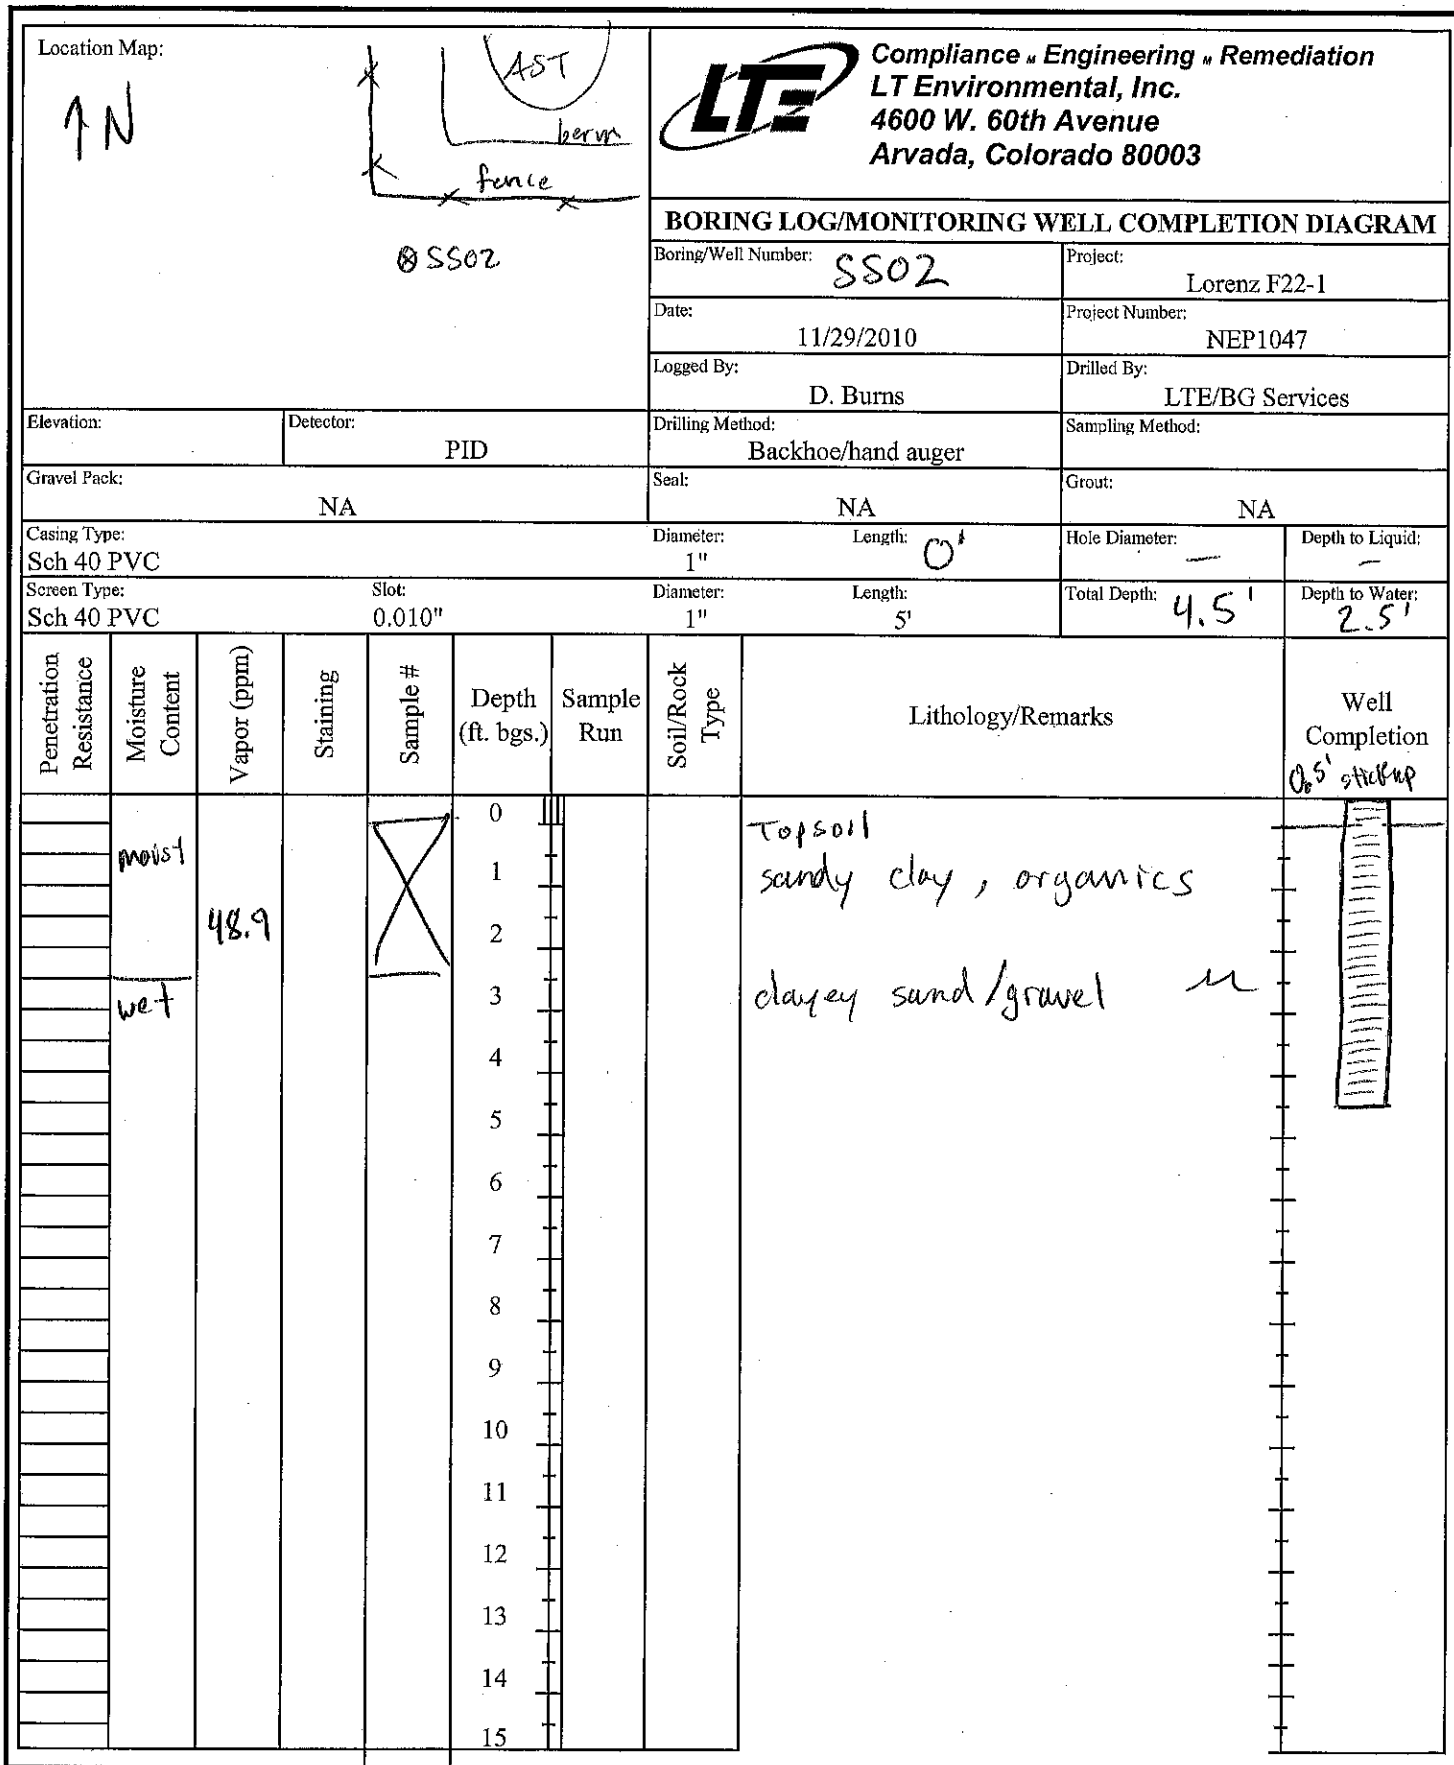 Location Map:
↑ N
AST
berm
fence
⊗ SS02
LTE
Compliance " Engineering " Remediation
LT Environmental, Inc.
4600 W. 60th Avenue
Arvada, Colorado 80003
BORING LOG/MONITORING WELL COMPLETION DIAGRAM
Boring/Well Number: SS02
Project: Lorenz F22-1
Date: 11/29/2010
Project Number: NEP1047
Logged By: D. Burns
Drilled By: LTE/BG Services
Elevation:
Detector: PID
Drilling Method: Backhoe/hand auger
Sampling Method:
Gravel Pack: NA
Seal: NA
Grout: NA
Casing Type: Sch 40 PVC
Diameter: 1"
Length: 0'
Hole Diameter: —
Depth to Liquid: —
Screen Type: Sch 40 PVC
Slot: 0.010"
Diameter: 1"
Length: 5'
Total Depth: 4.5'
Depth to Water: 2.5'
Penetration Resistance
Moisture Content
Vapor (ppm)
Staining
Sample #
Depth (ft. bgs.)
Sample Run
Soil/Rock Type
Lithology/Remarks
Well Completion
0.5' stickup
0
Topsoil
moist
1
sandy clay, organics
48.9
2
wet
3
clayey sand/gravel
4
5
6
7
8
9
10
11
12
13
14
15